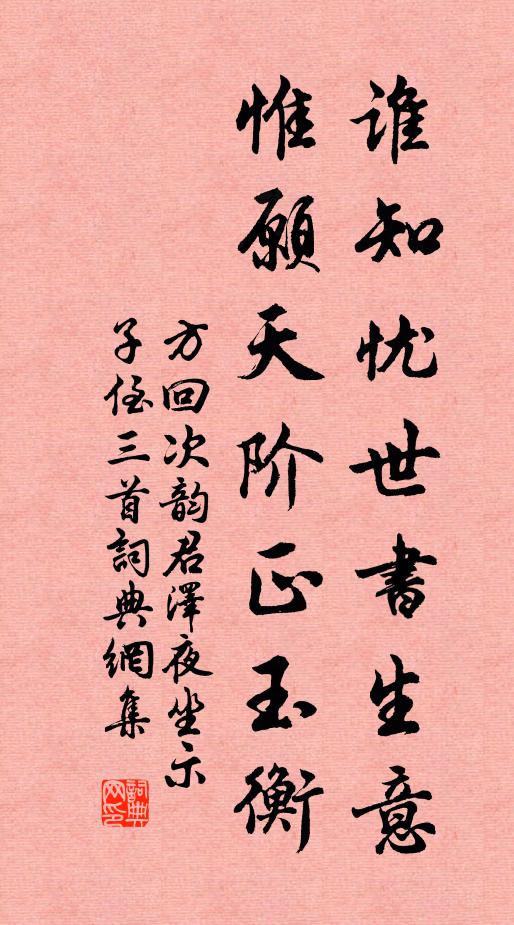 谁知忧世書生意
惟願天阶正玉衡
方回次韵君澤夜坐示
子侄三首詞典網集
詞典
网印